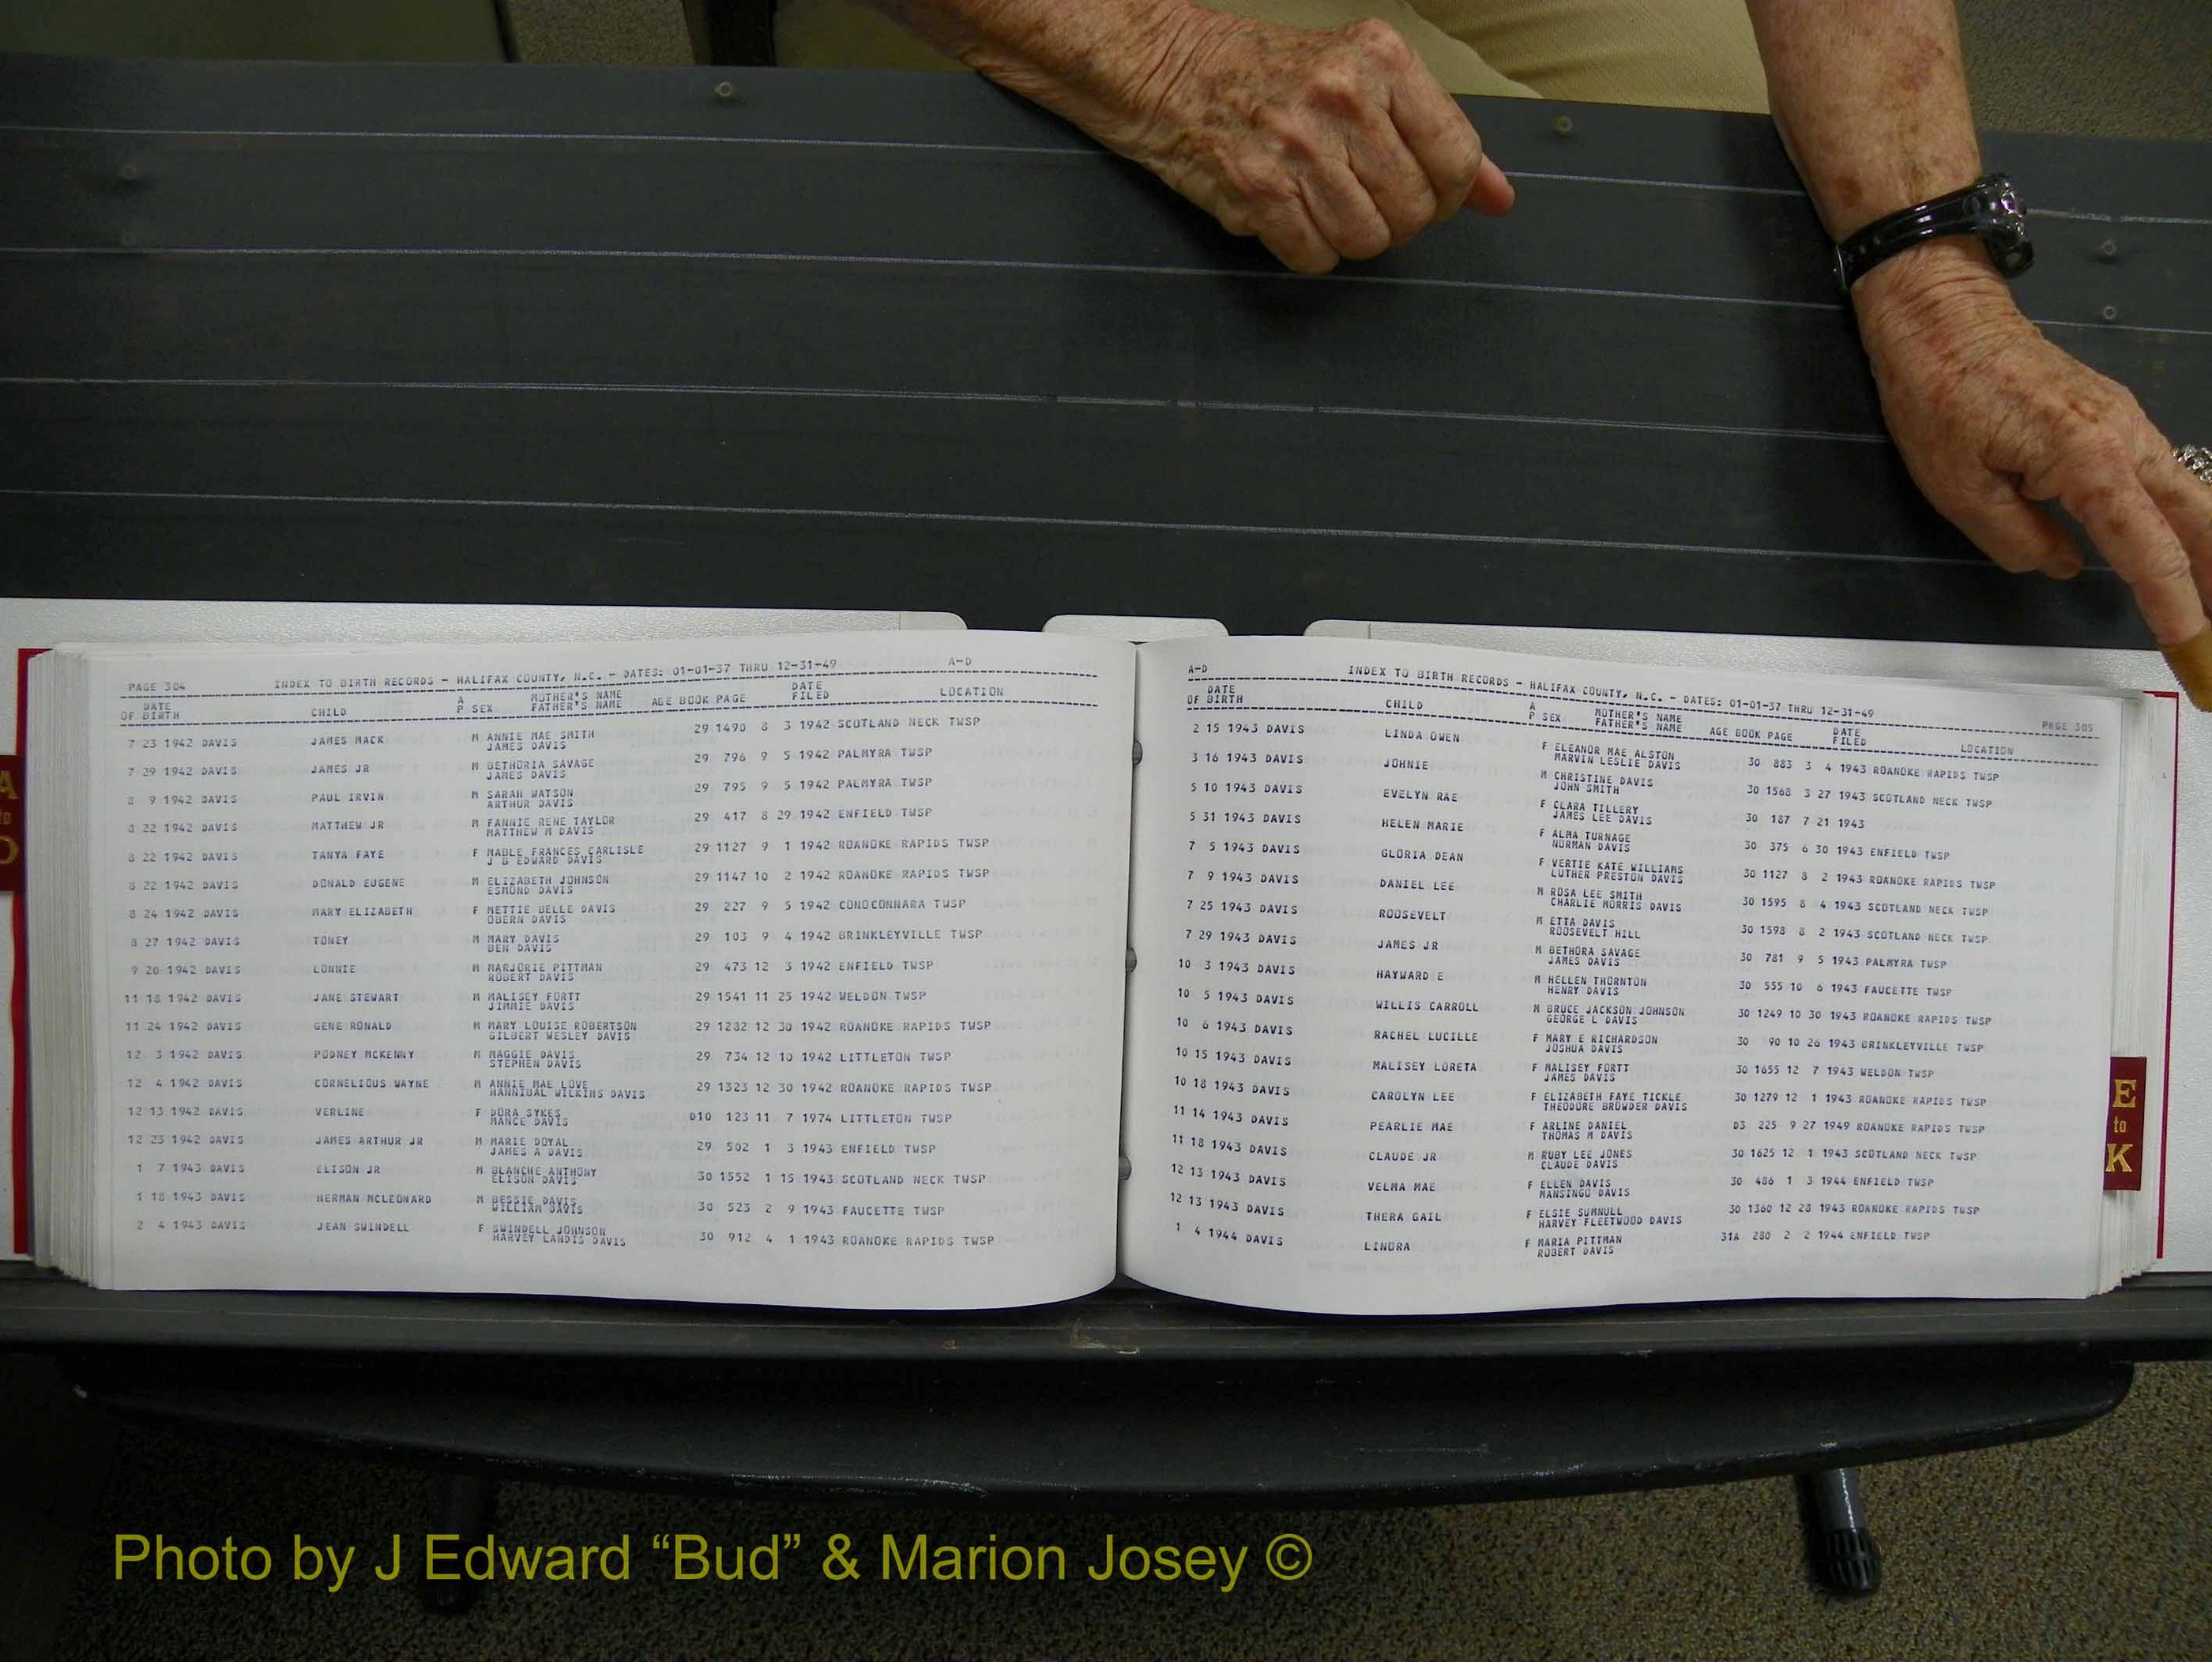 PAGE 304 INDEX TO BIRTH RECORDS - HALIFAX COUNTY, N.C. - DATES: 01-01-37 THRU 12-31-49 A-D
DATE OF BIRTH CHILD A P SEX MOTHER'S NAME FATHER'S NAME AGE BOOK PAGE DATE FILED LOCATION
7 23 1942 DAVIS JAMES MACK M ANNIE MAE SMITH 29 1490 8 3 1942 SCOTLAND NECK TWSP
JAMES DAVIS
7 29 1942 DAVIS JAMES JR M BETHORIA SAVAGE 29 796 9 5 1942 PALMYRA TWSP
JAMES DAVIS
8 9 1942 DAVIS PAUL IRVIN M SARAH WATSON 29 795 9 5 1942 PALMYRA TWSP
ARTHUR DAVIS
8 22 1942 DAVIS MATTHEW JR M FANNIE RENE TAYLOR 29 417 8 29 1942 ENFIELD TWSP
MATTHEW M DAVIS
8 22 1942 DAVIS TANYA FAYE F MABLE FRANCES CARLISLE 29 1127 9 1 1942 ROANOKE RAPIDS TWSP
J B EDWARD DAVIS
8 22 1942 DAVIS DONALD EUGENE M ELIZABETH JOHNSON 29 1147 10 2 1942 ROANOKE RAPIDS TWSP
ESMOND DAVIS
8 24 1942 DAVIS MARY ELIZABETH F METTIE BELLE DAVIS 29 227 9 5 1942 CONOCONNARA TWSP
OBERN DAVIS
8 27 1942 DAVIS TONEY M MARY DAVIS 29 103 9 4 1942 BRINKLEYVILLE TWSP
BEN DAVIS
9 20 1942 DAVIS LONNIE M MARJORIE PITTMAN 29 473 12 3 1942 ENFIELD TWSP
ROBERT DAVIS
11 18 1942 DAVIS JANE STEWART M MALISEY FORTT 29 1541 11 25 1942 WELDON TWSP
JIMMIE DAVIS
11 24 1942 DAVIS GENE RONALD M MARY LOUISE ROBERTSON 29 1232 12 30 1942 ROANOKE RAPIDS TWSP
GILBERT WESLEY DAVIS
12 3 1942 DAVIS PODNEY MCKENNY M MAGGIE DAVIS 29 734 12 10 1942 LITTLETON TWSP
STEPHEN DAVIS
12 4 1942 DAVIS CORNELIOUS WAYNE M ANNIE MAE LOVE 29 1323 12 30 1942 ROANOKE RAPIDS TWSP
HANNIBAL WILKINS DAVIS
12 13 1942 DAVIS VERLINE F DORA SYKES D10 123 11 7 1974 LITTLETON TWSP
MANCE DAVIS
12 23 1942 DAVIS JAMES ARTHUR JR M MARIE DOYAL 29 502 1 3 1943 ENFIELD TWSP
JAMES A DAVIS
1 7 1943 DAVIS ELISON JR M BLANCHE ANTHONY 30 1552 1 15 1943 SCOTLAND NECK TWSP
ELISON DAVIS
1 18 1943 DAVIS HERMAN MCLEONARD M BESSIE DAVIS 30 523 2 9 1943 FAUCETTE TWSP
WILLIAM DAVIS
2 4 1943 DAVIS JEAN SWINDELL F SWINDELL JOHNSON 30 912 4 1 1943 ROANOKE RAPIDS TWSP
HARVEY LANDIS DAVIS
A-D INDEX TO BIRTH RECORDS - HALIFAX COUNTY, N.C. - DATES: 01-01-37 THRU 12-31-49 PAGE 305
DATE OF BIRTH CHILD A P SEX MOTHER'S NAME FATHER'S NAME AGE BOOK PAGE DATE FILED LOCATION
2 15 1943 DAVIS LINDA OWEN F ELEANOR MAE ALSTON 30 883 3 4 1943 ROANOKE RAPIDS TWSP
MARVIN LESLIE DAVIS
3 16 1943 DAVIS JOHNIE M CHRISTINE DAVIS 30 1568 3 27 1943 SCOTLAND NECK TWSP
JOHN SMITH
5 10 1943 DAVIS EVELYN RAE F CLARA TILLERY 30 187 7 21 1943
JAMES LEE DAVIS
5 31 1943 DAVIS HELEN MARIE F ALMA TURNAGE 30 375 6 30 1943 ENFIELD TWSP
NORMAN DAVIS
7 5 1943 DAVIS GLORIA DEAN F VERTIE KATE WILLIAMS 30 1127 8 2 1943 ROANOKE RAPIDS TWSP
LUTHER PRESTON DAVIS
7 9 1943 DAVIS DANIEL LEE M ROSA LEE SMITH 30 1595 8 4 1943 SCOTLAND NECK TWSP
CHARLIE MORRIS DAVIS
7 25 1943 DAVIS ROOSEVELT M ETTA DAVIS 30 1598 8 2 1943 SCOTLAND NECK TWSP
ROOSEVELT HILL
7 29 1943 DAVIS JAMES JR M BETHORA SAVAGE 30 781 9 5 1943 PALMYRA TWSP
JAMES DAVIS
10 3 1943 DAVIS HAYWARD E M HELLEN THORNTON 30 555 10 6 1943 FAUCETTE TWSP
HENRY DAVIS
10 5 1943 DAVIS WILLIS CARROLL M BRUCE JACKSON JOHNSON 30 1249 10 30 1943 ROANOKE RAPIDS TWSP
GEORGE L DAVIS
10 6 1943 DAVIS RACHEL LUCILLE F MARY E RICHARDSON 30 90 10 26 1943 BRINKLEYVILLE TWSP
JOSHUA DAVIS
10 15 1943 DAVIS MALISEY LORETA F MALISEY FORTT 30 1655 12 7 1943 WELDON TWSP
JAMES DAVIS
10 18 1943 DAVIS CAROLYN LEE F ELIZABETH FAYE TICKLE 30 1279 12 1 1943 ROANOKE RAPIDS TWSP
THEODORE BROWDER DAVIS
11 14 1943 DAVIS PEARLIE MAE F ARLINE DANIEL D3 225 9 27 1949 ROANOKE RAPIDS TWSP
THOMAS M DAVIS
11 18 1943 DAVIS CLAUDE JR M RUBY LEE JONES 30 1625 12 1 1943 SCOTLAND NECK TWSP
CLAUDE DAVIS
12 13 1943 DAVIS VELMA MAE F ELLEN DAVIS 30 486 1 3 1944 ENFIELD TWSP
MANSINGO DAVIS
12 13 1943 DAVIS THERA GAIL F ELSIE SUMNULL 30 1360 12 28 1943 ROANOKE RAPIDS TWSP
HARVEY FLEETWOOD DAVIS
1 4 1944 DAVIS LINDRA F MARIA PITTMAN 31A 280 2 2 1944 ENFIELD TWSP
ROBERT DAVIS
A
to
D
E
to
K
Photo by J Edward “Bud” & Marion Josey ©